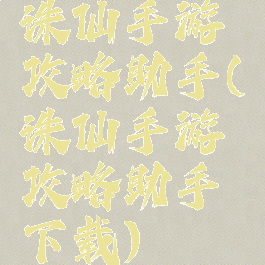 诛仙手游
攻略助手(
诛仙手游
攻略助手
下载)